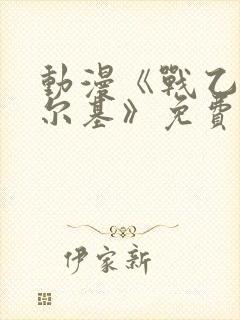 動漫《戰乙
尔基》免費
伊家新